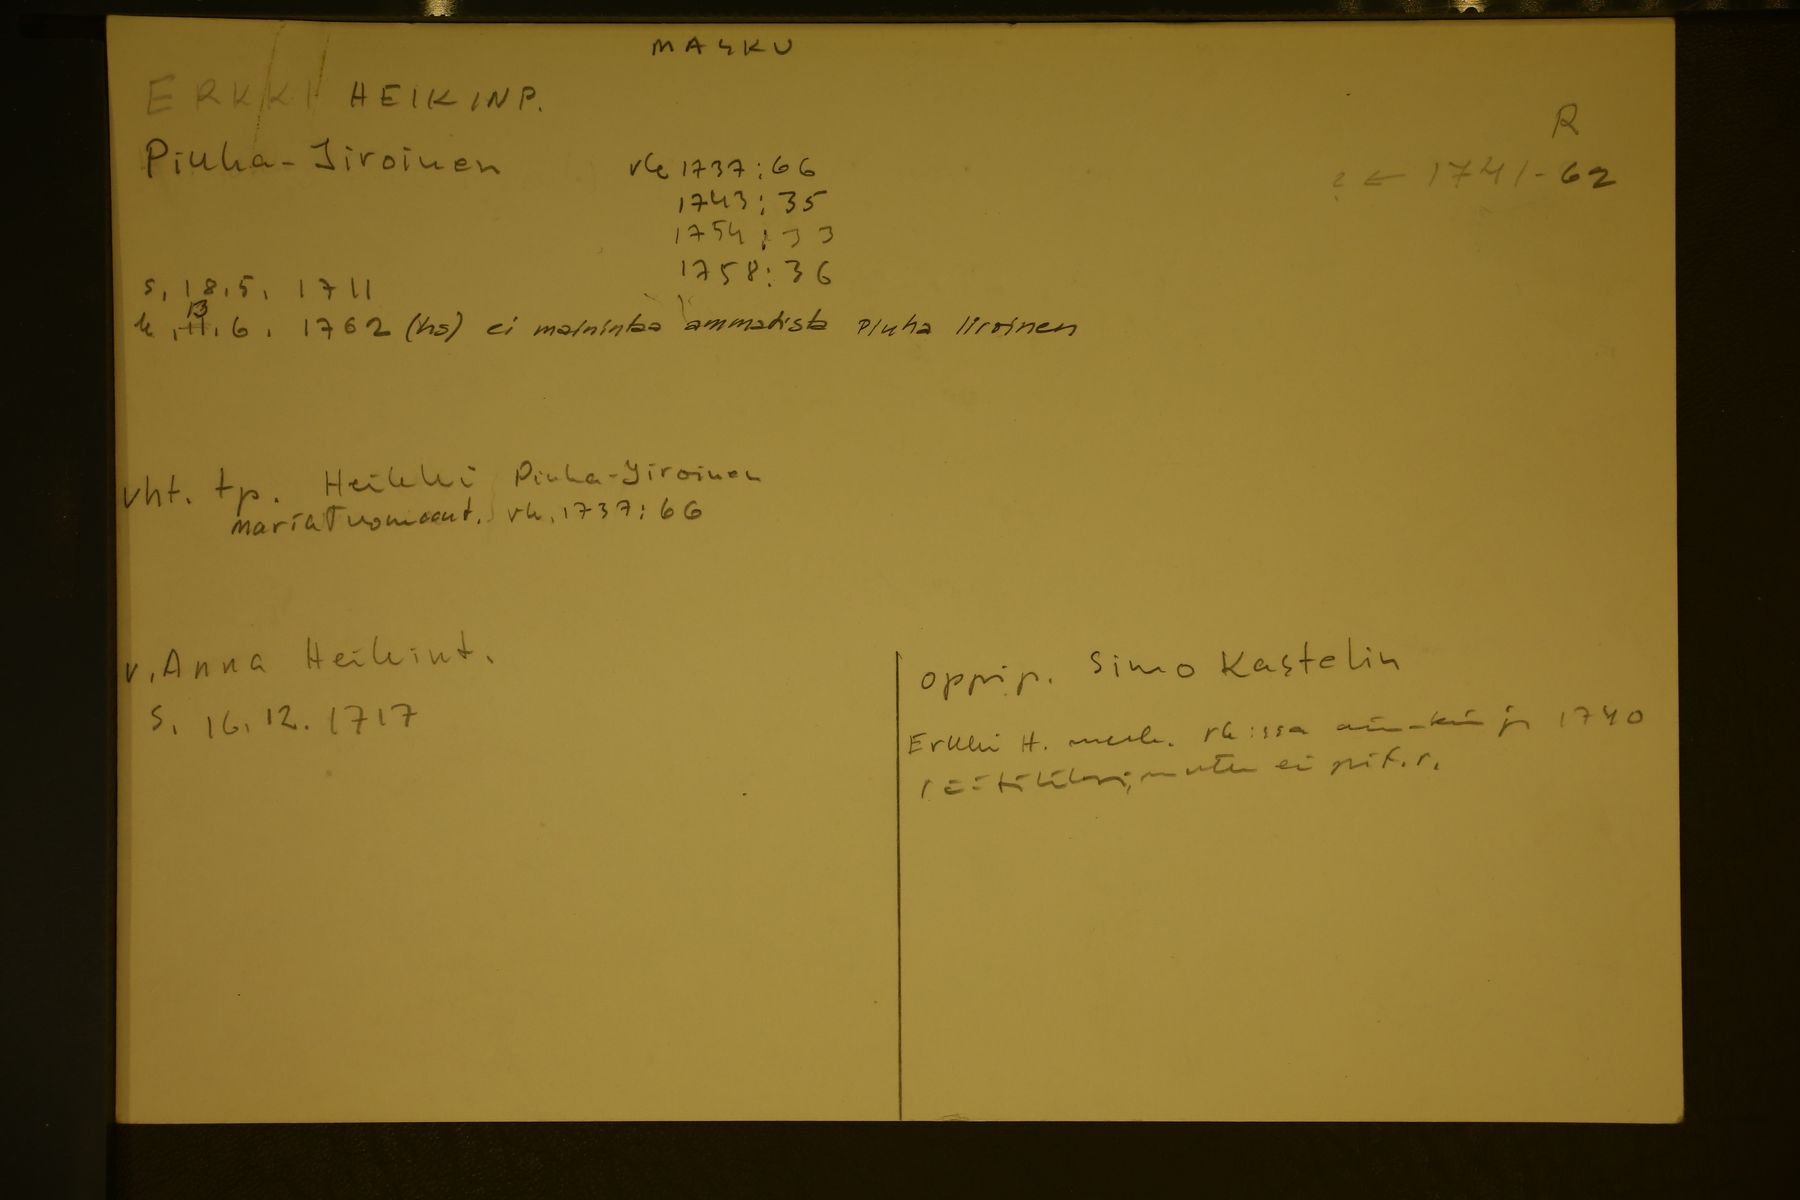 MASKU
ERKKI HEIKINP.
R
Piuha-Jiroinen
rk 1737:66
? ← 1741-62
1743:35
1754:33
1758:36
s, 18.5. 1711
13
k, 11.6. 1762 (hs) ei mainintaa ammatista Piuha Iiroinen
vht. tp. Heikki Piuha-Yiroinen
Maria Tuomaant. rk. 1737:66
v. Anna Heikint.
s. 16.12. 1717
oppip. Simo Kastelin
Erkki H. merk. rk:ssa ainakin j 1740
räätäliksi, mutta ei pit.r.